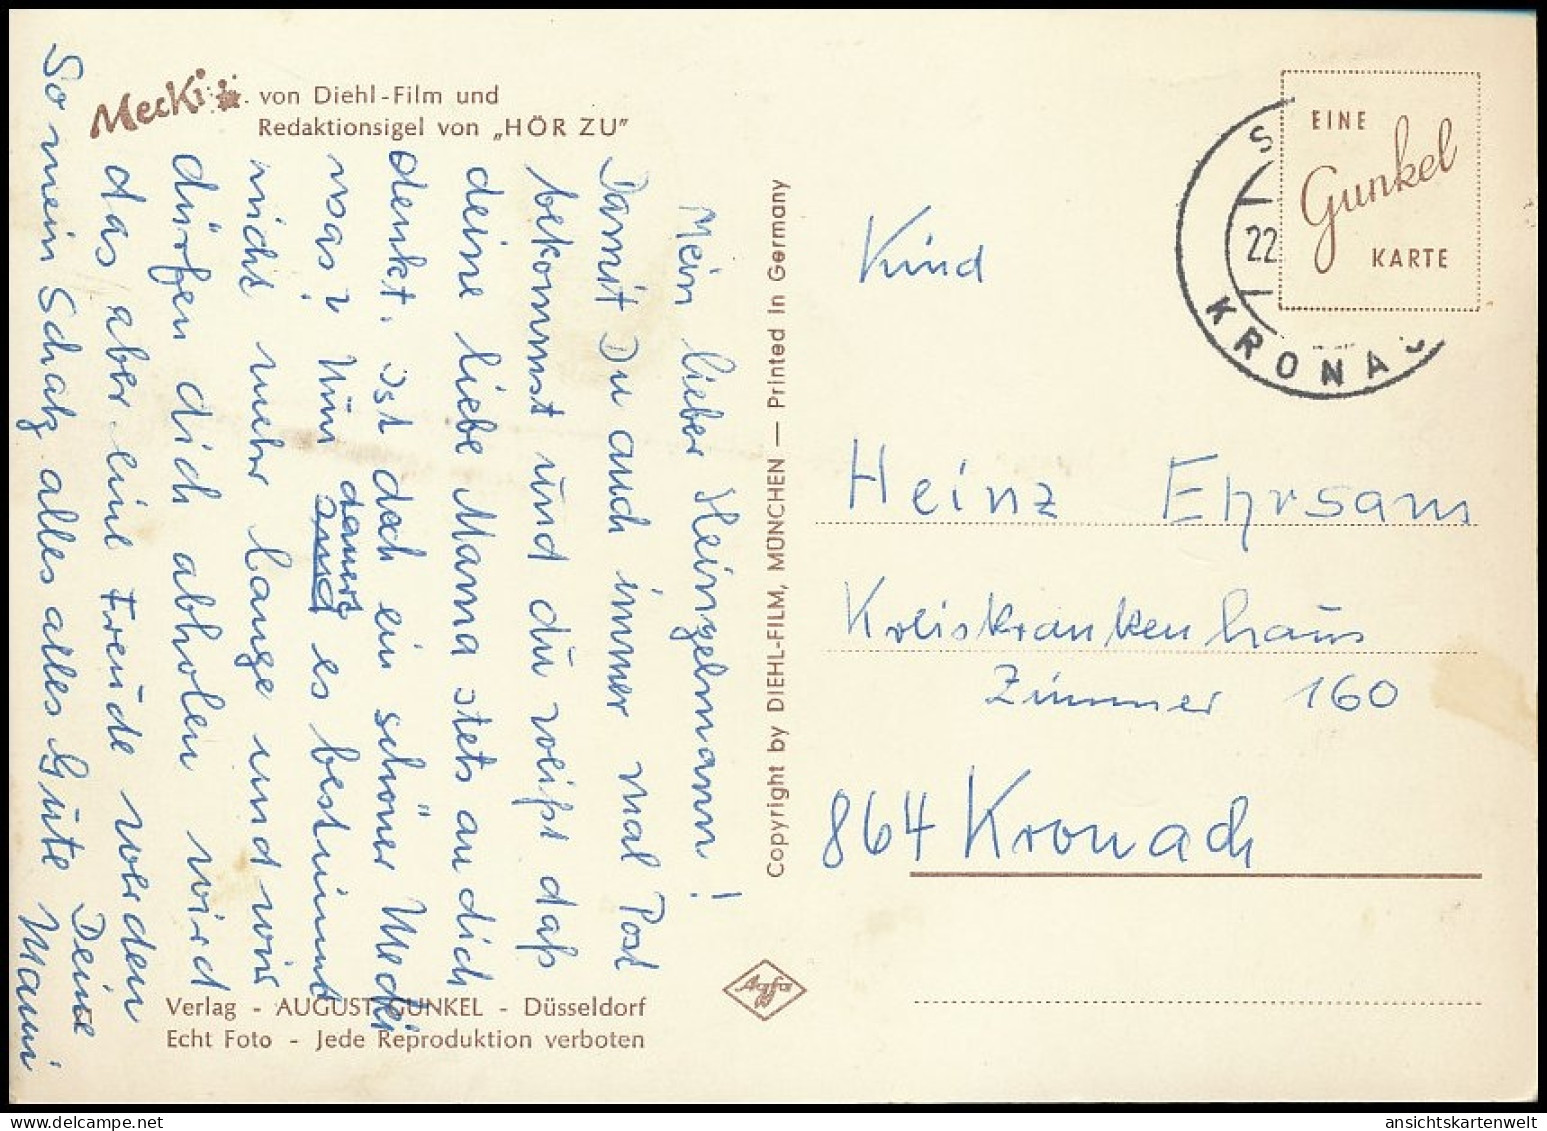 Mecki von Diehl-Film und
Redaktionsigel von „HÖR ZU"
Mein lieber Heinzelmann!
Damit Du auch immer mal Post
bekommst und du weißt daß
deine liebe Mama stets an dich
denkt. Ist doch ein schöner Mecki
was? Nun dauert es bestimmt
nicht mehr lange und wir
dürfen dich abholen wird
das aber eine Freude werden
So mein Schatz alles alles Gute Deine
Mami
Verlag - AUGUST GUNKEL - Düsseldorf
Echt Foto - Jede Reproduktion verboten
Copyright by DIEHL-FILM, MÜNCHEN — Printed in Germany
Agfa
EINE
Gunkel
KARTE
22
KRONAC
Kind
Heinz Ehrsam
Kreiskrankenhaus
Zimmer 160
864 Kronach
ansichtskartenwelt